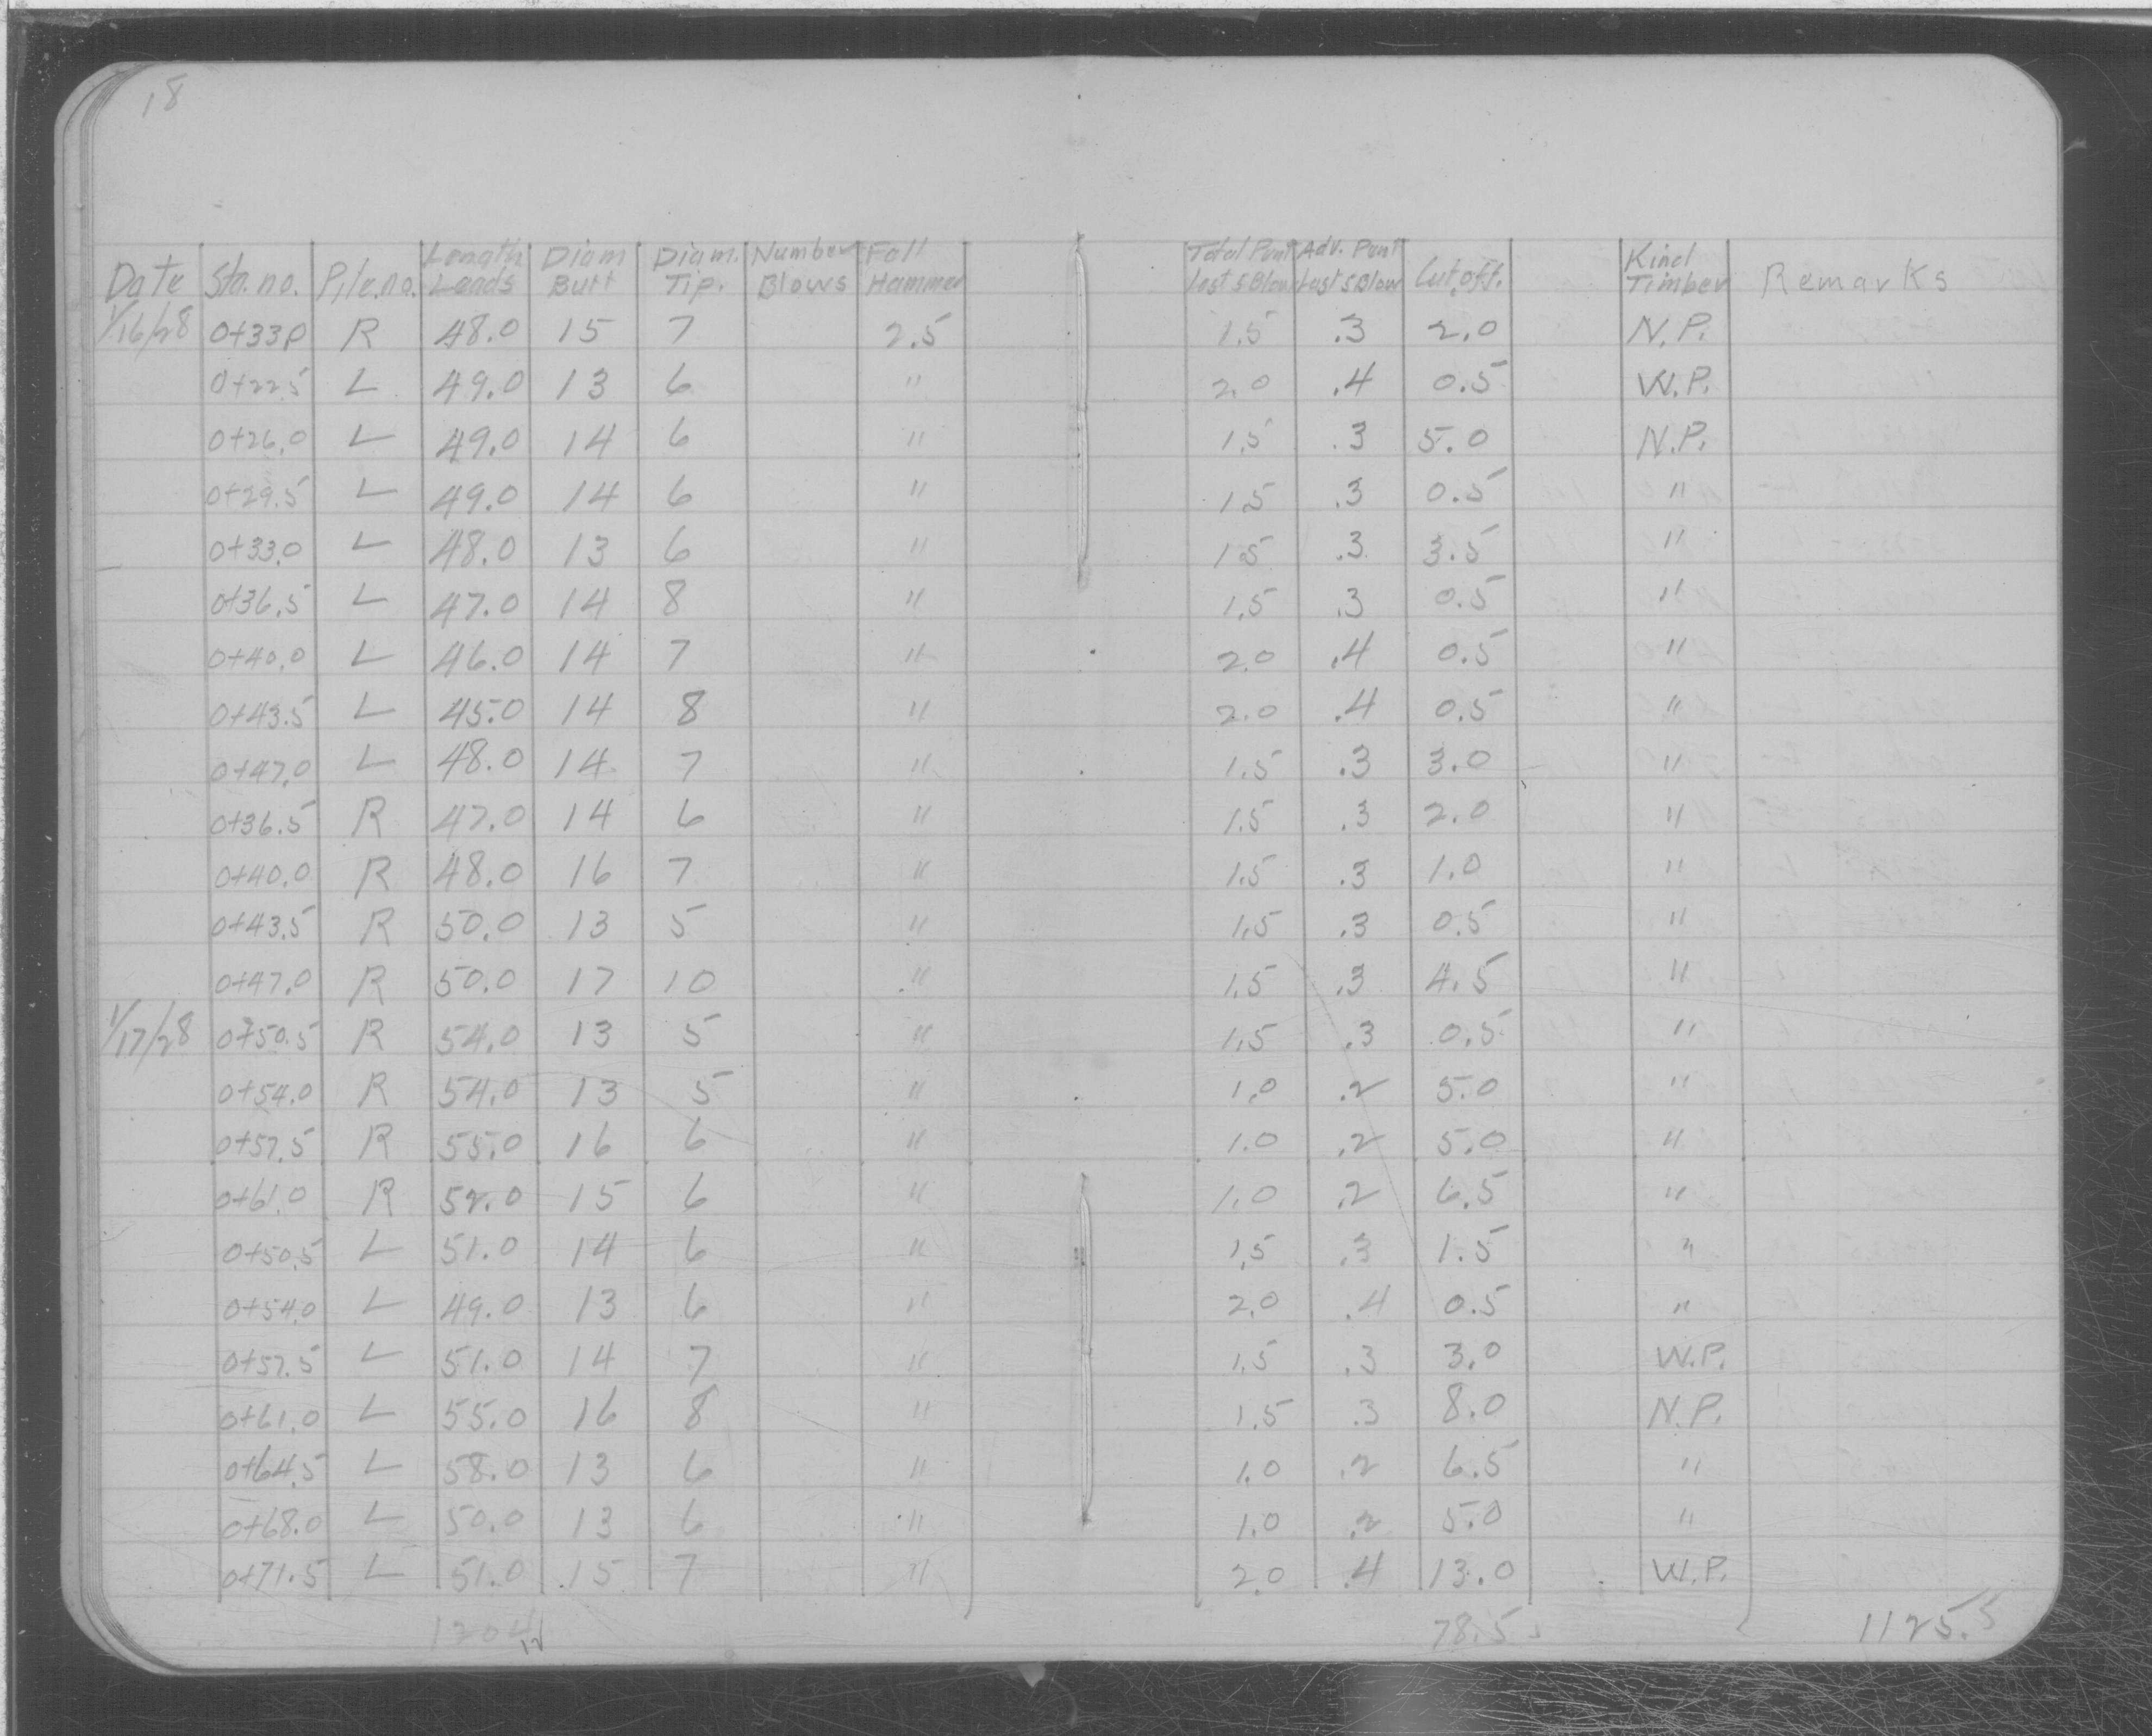 18
Date Sta.no. Pile.no. Length Leads Diam Butt Diam. Tip. Number Blows Fall Hammer Total Pent Last 5 Blow Adv. Pent Last 5 Blow Cut off. Kind Timber Remarks
1/16/28 0+33.0 R 48.0 15 7 2.5 1.5 .3 2.0 N.P.
0+22.5 L 49.0 13 6 " 2.0 .4 0.5 W.P.
0+26.0 L 49.0 14 6 " 1.5 .3 5.0 N.P.
0+29.5 L 49.0 14 6 " 1.5 .3 0.5 "
0+33.0 L 48.0 13 6 " 1.5 .3 3.5 "
0+36.5 L 47.0 14 8 " 1.5 .3 0.5 "
0+40.0 L 46.0 14 7 " 2.0 .4 0.5 "
0+43.5 L 45.0 14 8 " 2.0 .4 0.5 "
0+47.0 L 48.0 14 7 " 1.5 .3 3.0 "
0+36.5 R 47.0 14 6 " 1.5 .3 2.0 "
0+40.0 R 48.0 16 7 " 1.5 .3 1.0 "
0+43.5 R 50.0 13 5 " 1.5 .3 0.5 "
0+47.0 R 50.0 17 10 " 1.5 .3 4.5 "
1/17/28 0+50.5 R 54.0 13 5 " 1.5 .3 0.5 "
0+54.0 R 54.0 13 5 " 1.0 .2 5.0 "
0+57.5 R 55.0 16 6 " 1.0 .2 5.0 "
0+61.0 R 52.0 15 6 " 1.0 .2 6.5 "
0+50.5 L 51.0 14 6 " 1.5 .3 1.5 "
0+54.0 L 49.0 13 6 " 2.0 .4 0.5 "
0+57.5 L 51.0 14 7 " 1.5 .3 3.0 W.P.
0+61.0 L 55.0 16 8 " 1.5 .3 8.0 N.P.
0+64.5 L 58.0 13 6 " 1.0 .2 6.5 "
0+68.0 L 50.0 13 6 " 1.0 .2 5.0 "
0+71.5 L 51.0 15 7 " 2.0 .4 13.0 W.P.
1204 78.5 1125.5
12